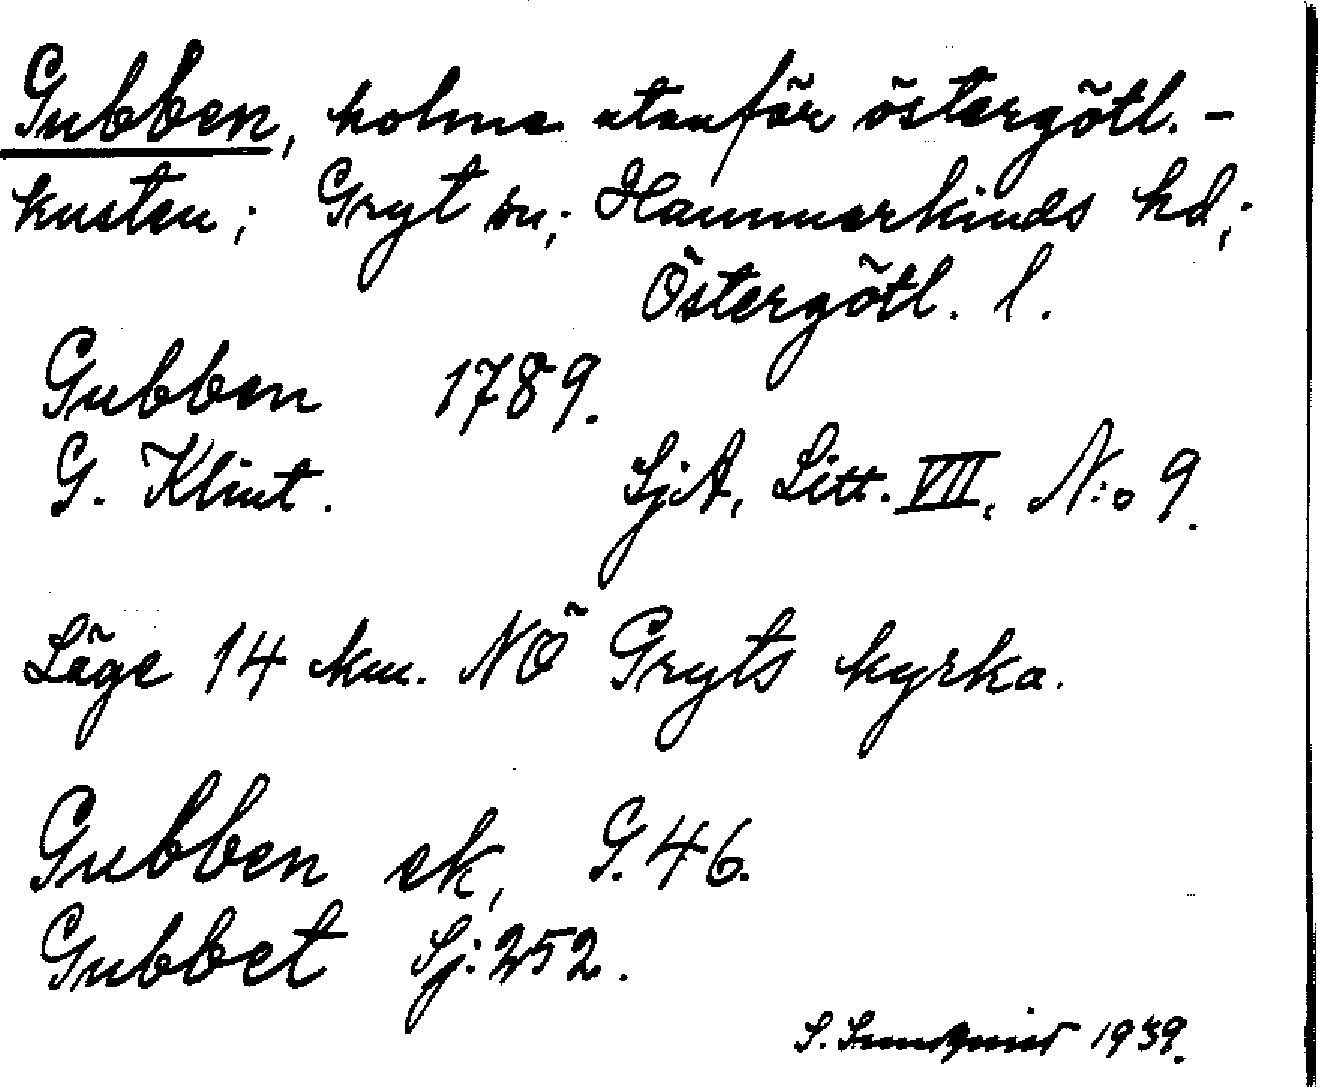 Gubben, holme utanför östergötl.-
kusten; Gryt sn; Hammarkinds hd;
Östergötl. l.
Gubben 1789.
G. Klint. SjA, Litt. VII, N:o 9.
Läge 14 km. NÖ Gryts kyrka.
Gubben ek, G. 46.
Gubbet Sj: 252.
S. Sundqvist 1939.